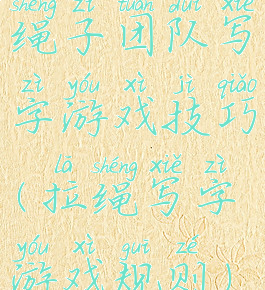 shéng zi tuán duì xiě
绳子团队写
zì yóu xì jì qiǎo
字游戏技巧
lā shéng xiě zì
(拉绳写字
yóu xì guī zé
游戏规则)